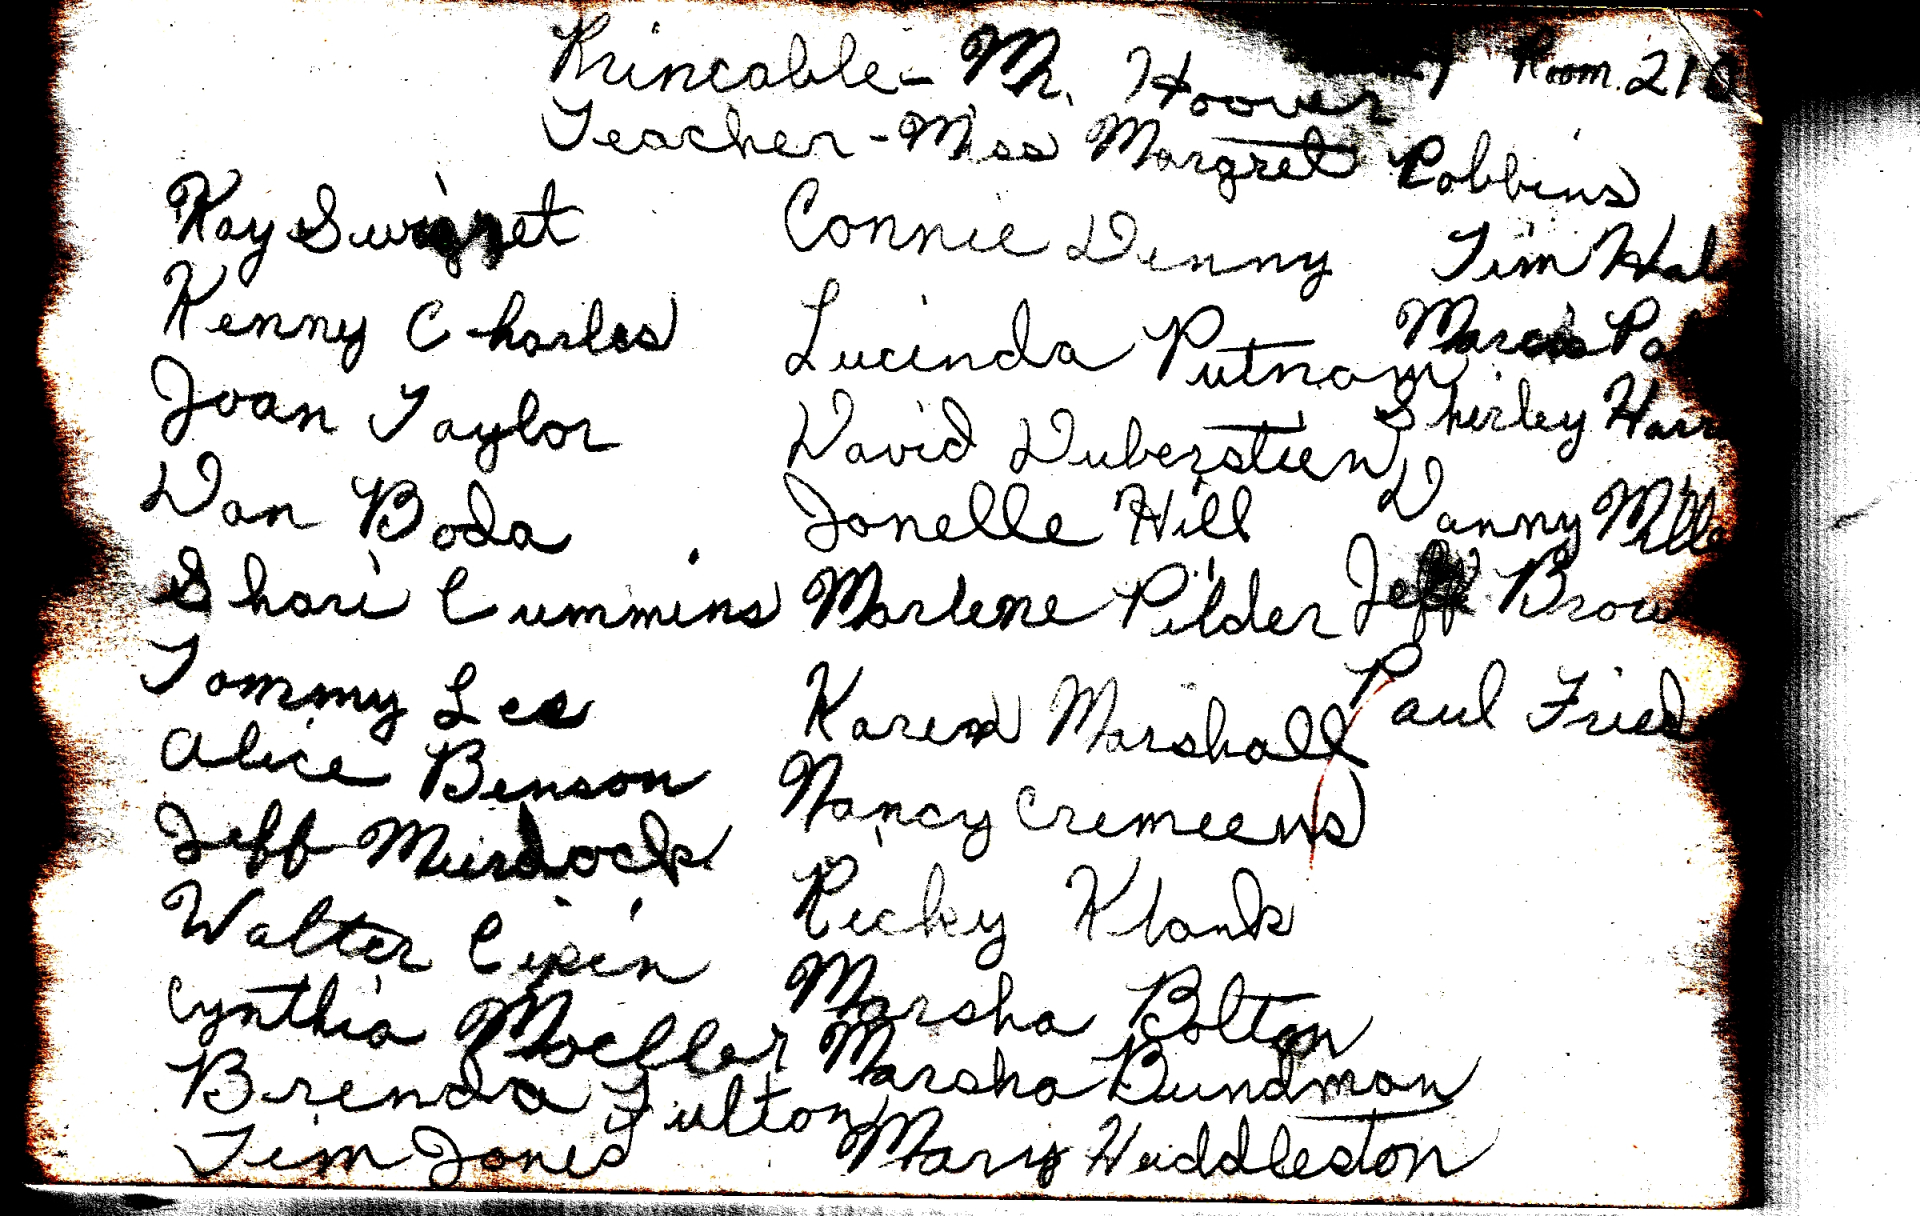 Princable - Mr. Hoover Room 210
Teacher - Miss Margret Robbins
Kay
Kenny Charles
Joan Taylor
Dan Boda
Shari Cummins
Tommy Lee
Alice Benson
Jeff Murdock
Walter
Cynthia Moeller
Brenda Fulton
Tim Jones
Connie Denny
Lucinda Putnam
David Duberstien
Jonelle Hill
Marlene Pilder
Karen Marshall
Nancy Cremeens
Ricky Klank
Marsha Bolton
Marsha Bundman
Mary Huddleston
Tim
Shirley
Danny
Jeff
Paul